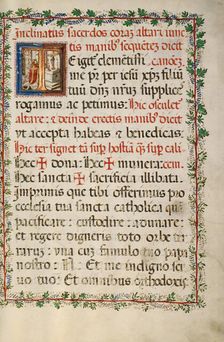 Inclinatus sacerdos corā altari iunc
tis manib' sequētez dicit
canonē.
E igit clemētissi
me pr̄ per iesū xp̄m filiū
tuū dn̄m nr̄ū supplices
rogamus ac petimus: Hic osculet
altare: & deinde erectis manib' dicit
vt accepta habeas & benedicas:
Hic ter signet tā sup hostiā qz̄ sup cali
cem.
Hec ✠ dona: Hec ✠ munera:
Hec sancta ✠ sacrificia illibata.
Imprimis que tibi offerimus pro
ecclesia tua sancta catholica quā
pacificare: custodire: adunare:
et regere digneris toto orbe ter
rarum: vna cum famulo tuo papa
nostro: N: Et me indigno ser
uo tuo: Et omnibus orthodoxis